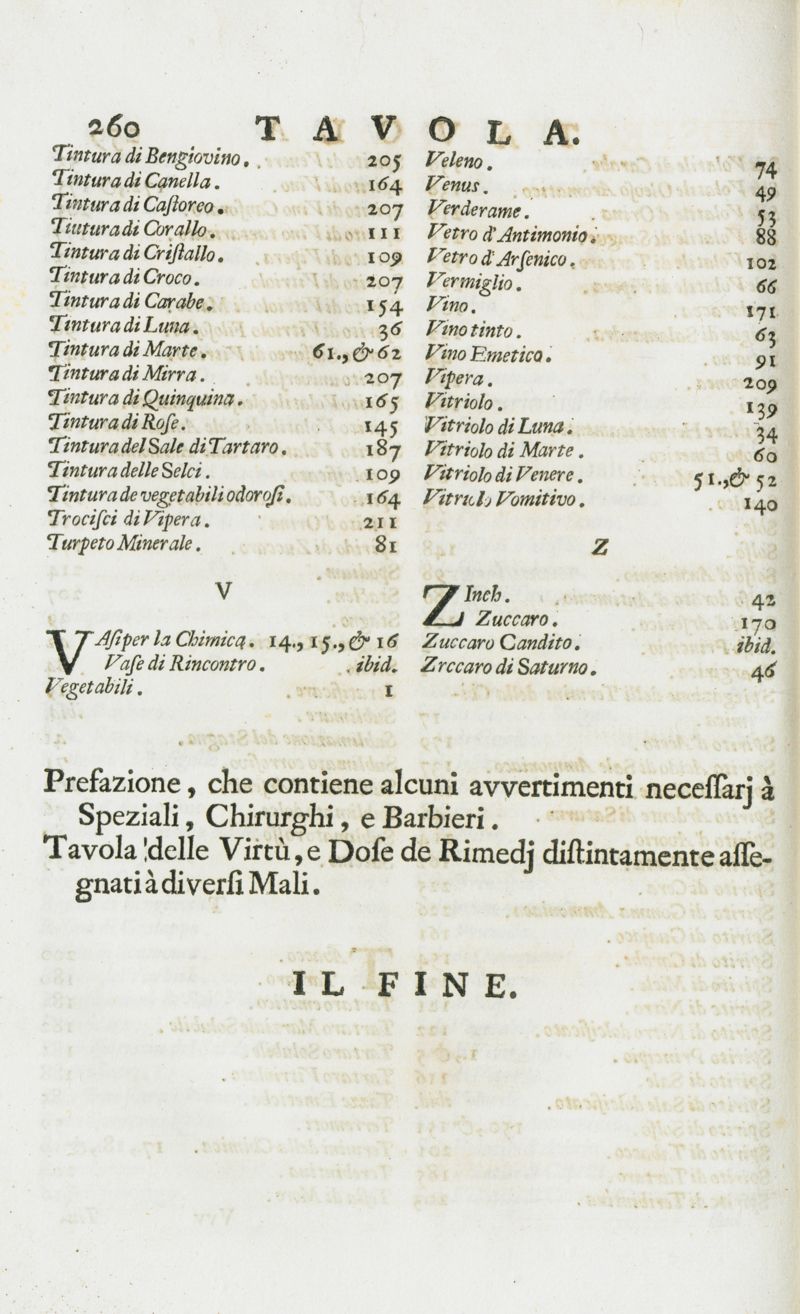 260 TAVOLA.
Tintura di Bengiovino. 205
Tintura di Canella. 164
Tintura di Caſtoreo. 207
Tiutura di Corallo. 111
Tintura di Criſtallo. 109
Tintura di Croco. 207
Tintura di Carabe. 154
Tintura di Luna. 36
Tintura di Marte. 61., & 62
Tintura di Mirra. 207
Tintura di Quinquina. 165
Tintura di Roſe. 145
Tintura del Sale di Tartaro. 187
Tintura delle Selci. 109
Tintura de vegetabili odoroſi. 164
Trociſci di Vipera. 211
Turpeto Minerale. 81
V
VAſi per la Chimica. 14., 15., & 16
Vaſe di Rincontro. ibid.
Vegetabili. 1
Veleno. 74
Venus. 49
Verderame. 53
Vetro d'Antimonio. 88
Vetro d'Arſenico. 102
Vermiglio. 66
Vino. 171
Vino tinto. 63
Vino Emetico. 91
Vipera. 209
Vitriolo. 139
Vitriolo di Luna. 34
Vitriolo di Marte. 60
Vitriolo di Venere. 51., & 52
Vitriolo Vomitivo. 140
Z
ZInch. 42
Zuccaro. 170
Zuccaro Candito. ibid.
Zrccaro di Saturno. 46
Prefazione, che contiene alcuni avvertimenti neceſſarj à
Speziali, Chirurghi, e Barbieri.
Tavola delle Virtù, e Doſe de Rimedj diſtintamente aſſe-
gnati à diverſi Mali.
IL FINE.